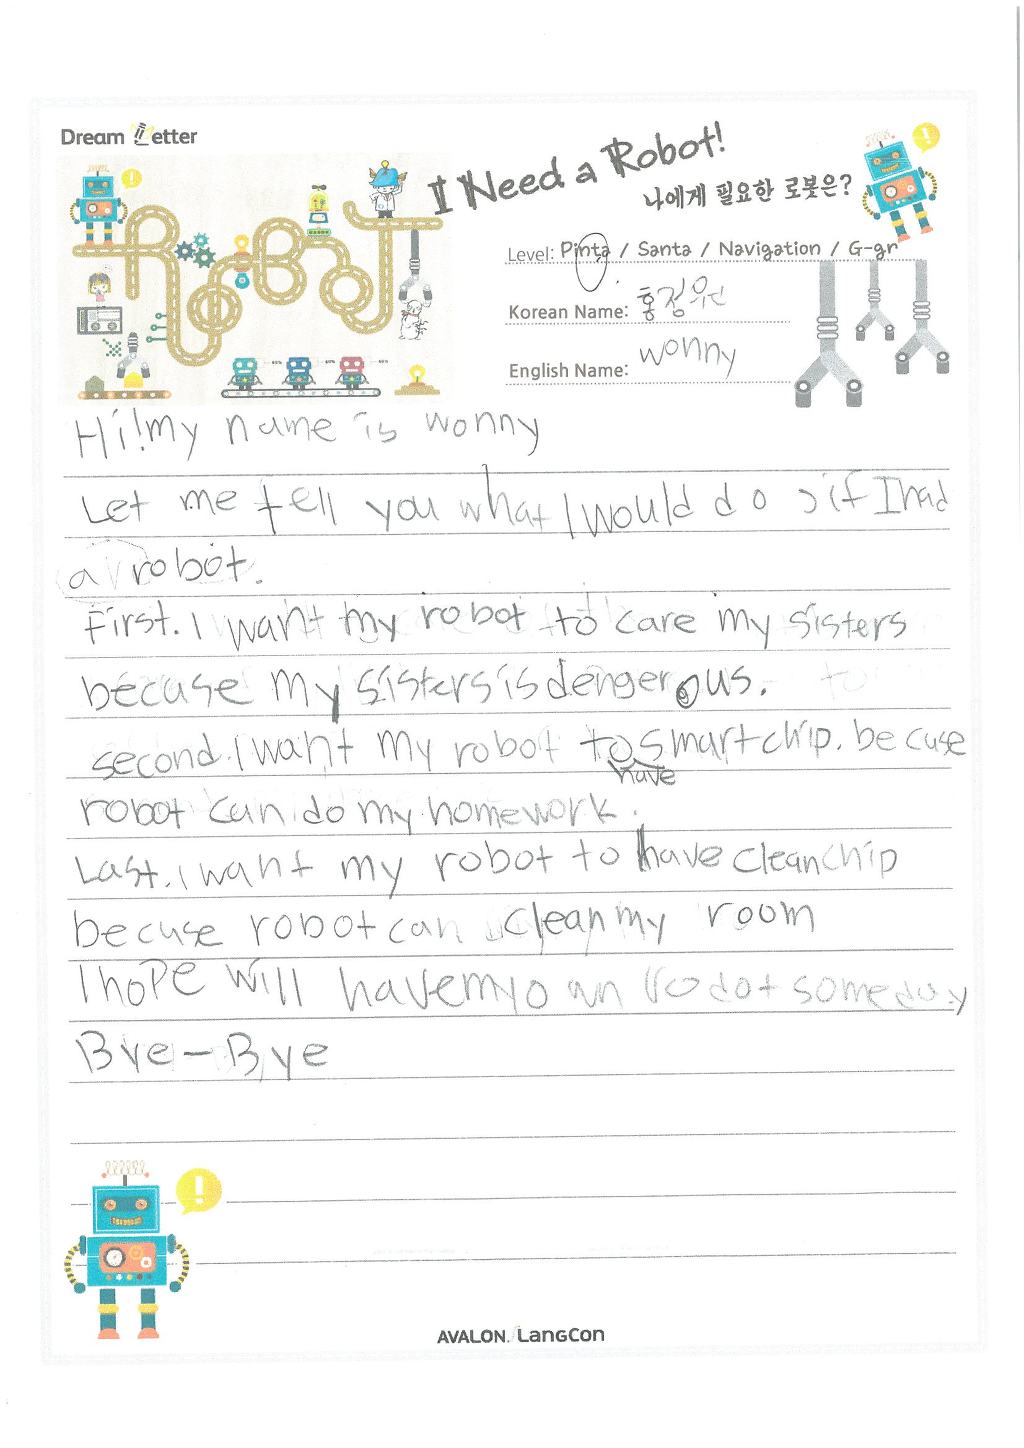 Dream Letter
I Need a Robot!
나에게 필요한 로봇은?
Level: Pinta / Santa / Navigation / G-gr
Korean Name: 홍정원
English Name: wonny
Hi! my name is wonny
Let me tell you what I would do if I had
a robot.
First. I want my robot to care my sisters
becuse my sisters is dengerous.
second. I want my robot to smart chip. becuse
have
robot can do my homework.
Last. I want my robot to have clean chip
becuse robot can clean my room
I hope will have my own someday
Bye-Bye
AVALON. LangCon